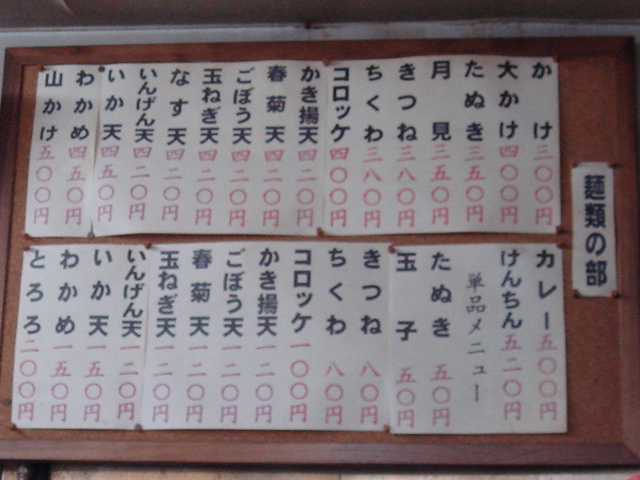 麺類の部
かけ三〇〇円
大かけ四〇〇円
たぬき三五〇円
月見三五〇円
きつね三八〇円
ちくわ三八〇円
コロッケ四〇〇円
かき揚天四二〇円
春菊天四二〇円
ごぼう天四二〇円
玉ねぎ天四二〇円
なす天四二〇円
いんげん天四二〇円
いか天四五〇円
わかめ四五〇円
山かけ五〇〇円
カレー五〇〇円
けんちん五二〇円
単品メニュー
たぬき五〇円
玉子五〇円
きつね八〇円
ちくわ八〇円
コロッケ一〇〇円
かき揚天一二〇円
ごぼう天一二〇円
春菊天一二〇円
玉ねぎ天一二〇円
いんげん天一二〇円
いか天一五〇円
わかめ一五〇円
とろろ二〇〇円